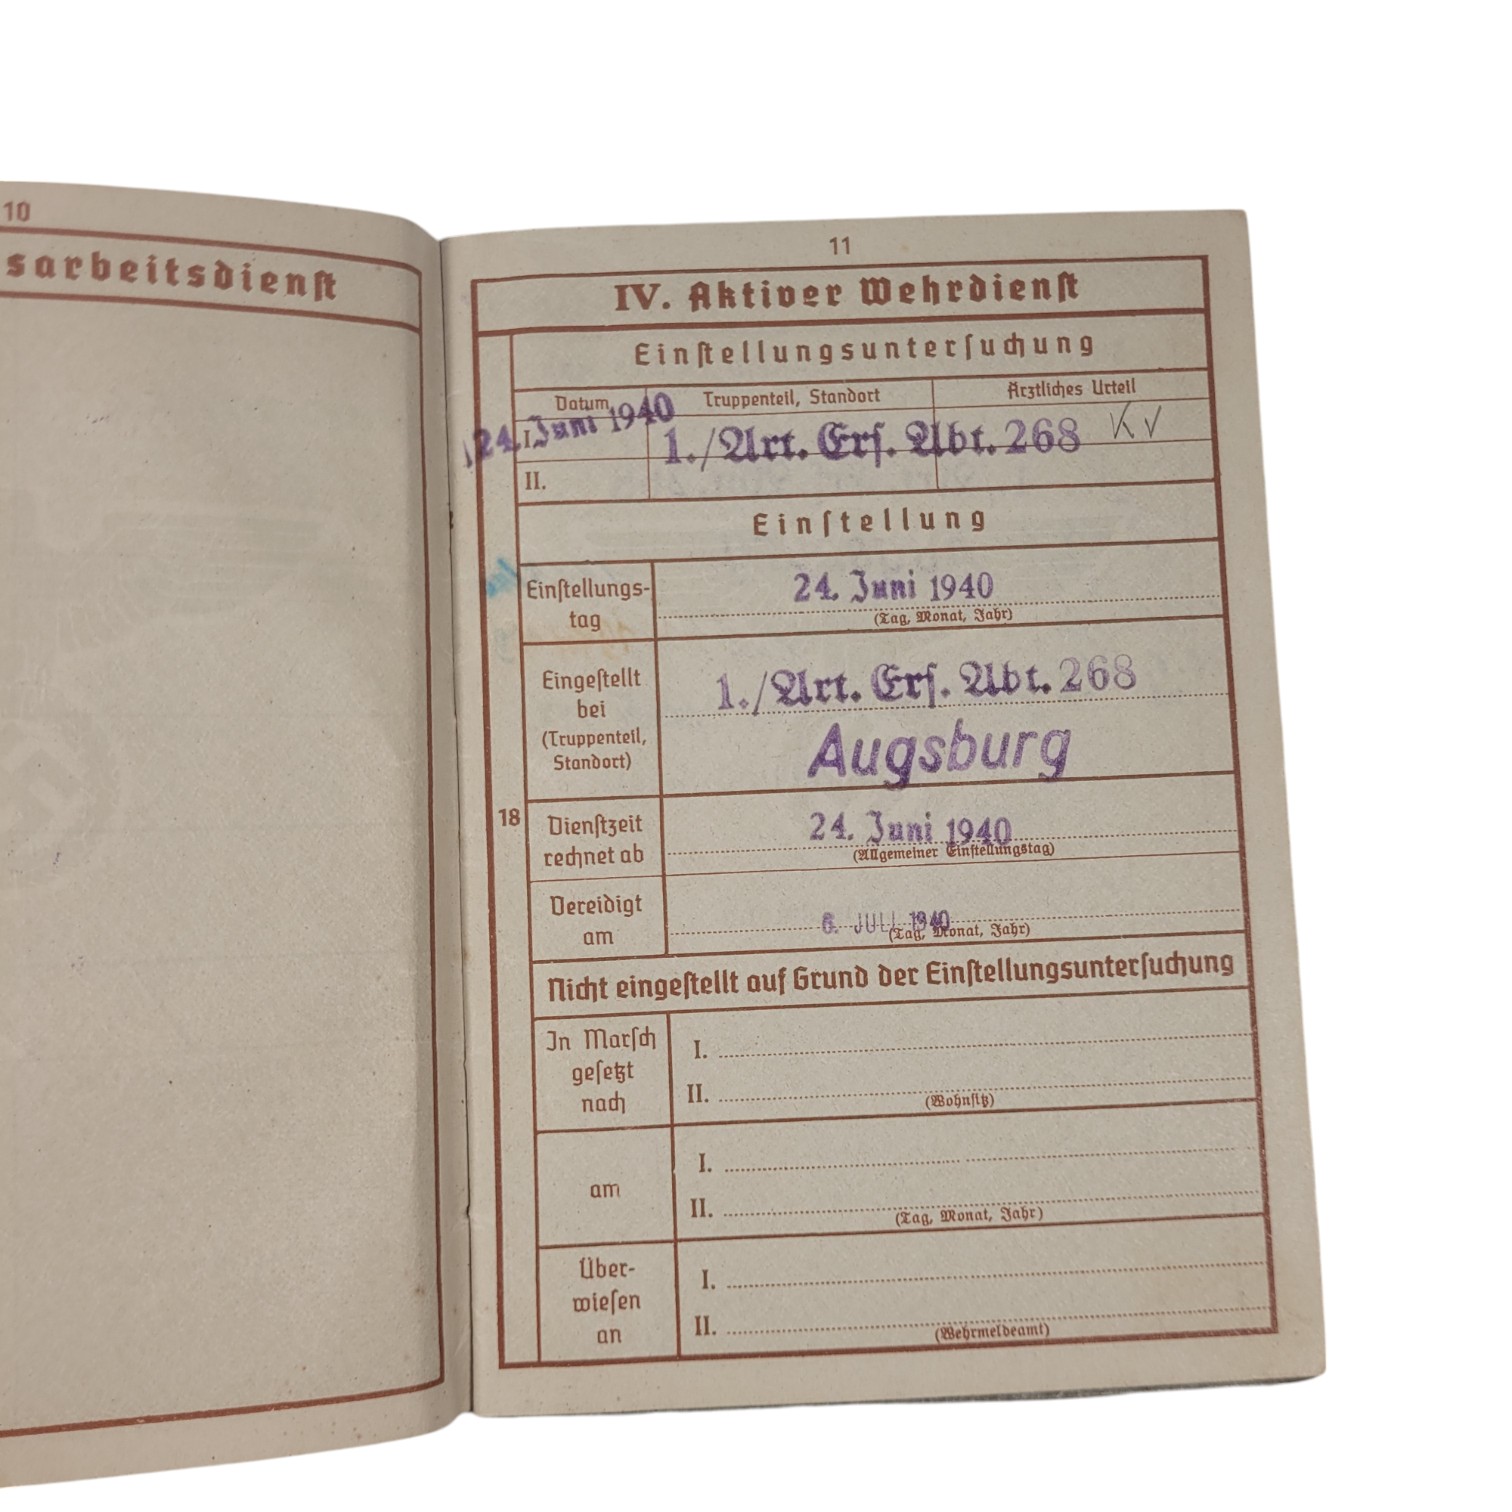 10
sarbeitsdienst
11
IV. Aktiver Wehrdienst
Einstellungsuntersuchung
Datum Truppenteil, Standort Ärztliches Urteil
I. 24. Juni 1940 1./Art. Ers. Abt. 268 Kv
II.
Einstellung
Einstellungs-
tag
24. Juni 1940
(Tag, Monat, Jahr)
Eingestellt
bei
(Truppenteil,
Standort)
1./Art. Ers. Abt. 268
Augsburg
18
Dienstzeit
rechnet ab
24. Juni 1940
(Allgemeiner Einstellungstag)
Vereidigt
am
6. JULI 1940
(Tag, Monat, Jahr)
Nicht eingestellt auf Grund der Einstellungsuntersuchung
In Marsch
gesetzt
nach
I.
II.
(Wohnsitz)
am
I.
II.
(Tag, Monat, Jahr)
Über-
wiesen
an
I.
II.
(Wehrmeldeamt)